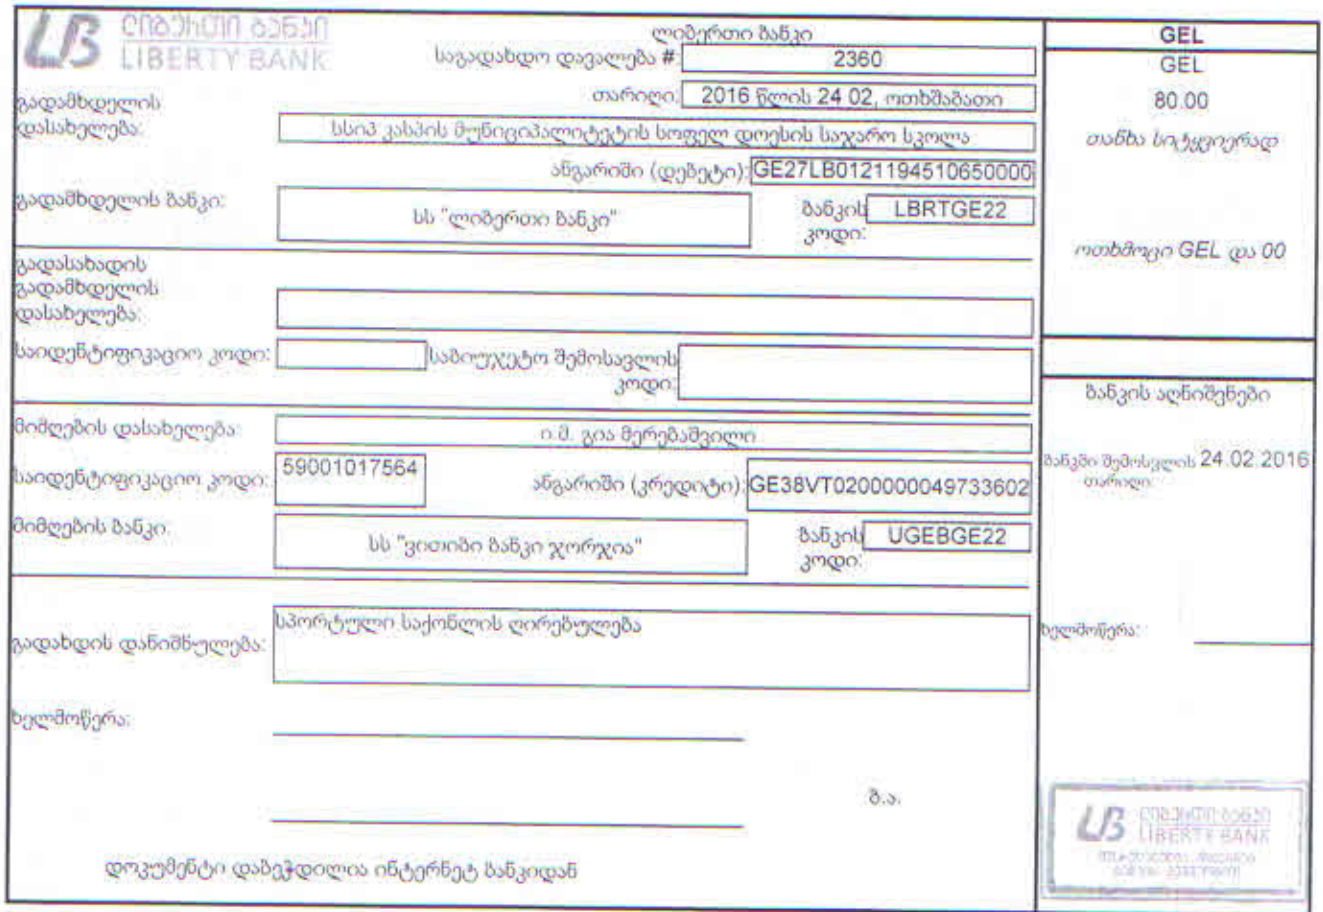 ლიბერთი ბანკი
LIBERTY BANK
ლიბერთი ბანკი
საგადახდო დავალება #: 2360
თარიღი: 2016 წლის 24 02, ოთხშაბათი
გადამხდელის
დასახელება: სსიპ კასპის მუნიციპალიტეტის სოფელ დოესის საჯარო სკოლა
ანგარიში (დებეტი): GE27LB0121194510650000
გადამხდელის ბანკი: სს "ლიბერთი ბანკი" ბანკის კოდი: LBRTGE22
გადასახადის
გადამხდელის
დასახელება:
საიდენტიფიკაციო კოდი: საბიუჯეტო შემოსავლის
კოდი:
მიმღების დასახელება: ი.მ. გია მერებაშვილი
საიდენტიფიკაციო კოდი: 59001017564 ანგარიში (კრედიტი): GE38VT0200000049733602
მიმღების ბანკი: სს "ვითიბი ბანკი ჯორჯია" ბანკის კოდი: UGEBGE22
გადახდის დანიშნულება: სპორტული საქონლის ღირებულება
ხელმოწერა:
ბ.ა.
დოკუმენტი დაბეჭდილია ინტერნეტ ბანკიდან
GEL
GEL
80.00
თანხა სიტყვიერად
ოთხმოცი GEL და 00
ბანკის აღნიშვნები
ბანკში შემოსვლის 24.02.2016
თარიღი:
ხელმოწერა:
ლიბერთი ბანკი
LIBERTY BANK